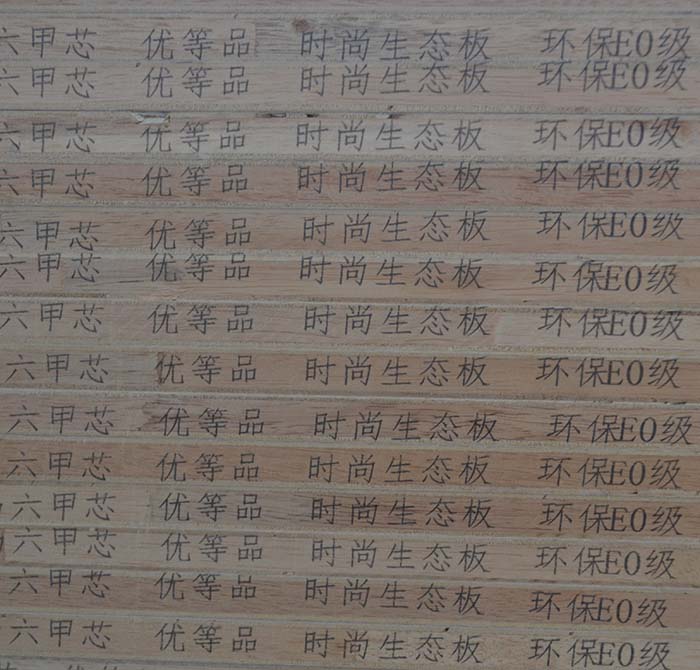 六甲芯 优等品 时尚生态板 环保EO级
六甲芯 优等品 时尚生态板 环保EO级
六甲芯 优等品 时尚生态板 环保EO级
六甲芯 优等品 时尚生态板 环保EO级
六甲芯 优等品 时尚生态板 环保EO级
六甲芯 优等品 时尚生态板 环保EO级
六甲芯 优等品 时尚生态板 环保EO级
六甲芯 优等品 时尚生态板 环保EO级
六甲芯 优等品 时尚生态板 环保EO级
六甲芯 优等品 时尚生态板 环保EO级
六甲芯 优等品 时尚生态板 环保EO级
六甲芯 优等品 时尚生态板 环保EO级
六甲芯 优等品 时尚生态板 环保EO级
六甲芯 优等品 时尚生态板 环保EO级